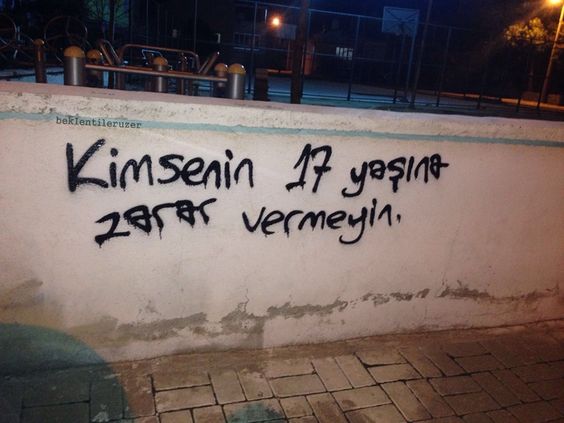 beklentileruzer
Kimsenin 17 yaşına
zarar vermeyin.